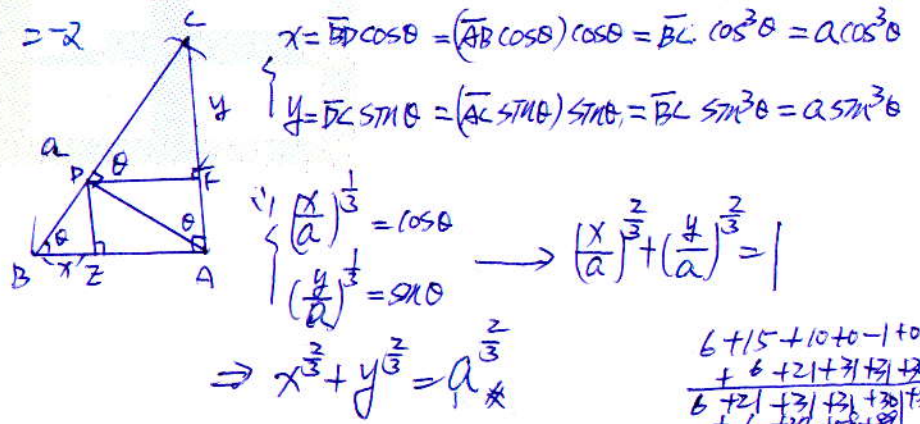 =-2
x = B̅D̅ cosθ = (A̅B̅ cosθ) cosθ = B̅C̅. cos³θ = a cos³θ
y = D̅C̅ sinθ = (A̅C̅ sinθ) sinθ, = B̅C̅ sin³θ = a sin³θ
C
y
a
D θ F
θ
B θ x E A
∴ (x/a)^(1/3) = cosθ
(y/a)^(1/3) = sinθ
⟶ (x/a)^(2/3) + (y/a)^(2/3) = 1
⇒ x^(2/3) + y^(2/3) = a^(2/3) ※
6+15+10+0-1+0
+ 6+21+31+31+3
6+21+31+31+30+